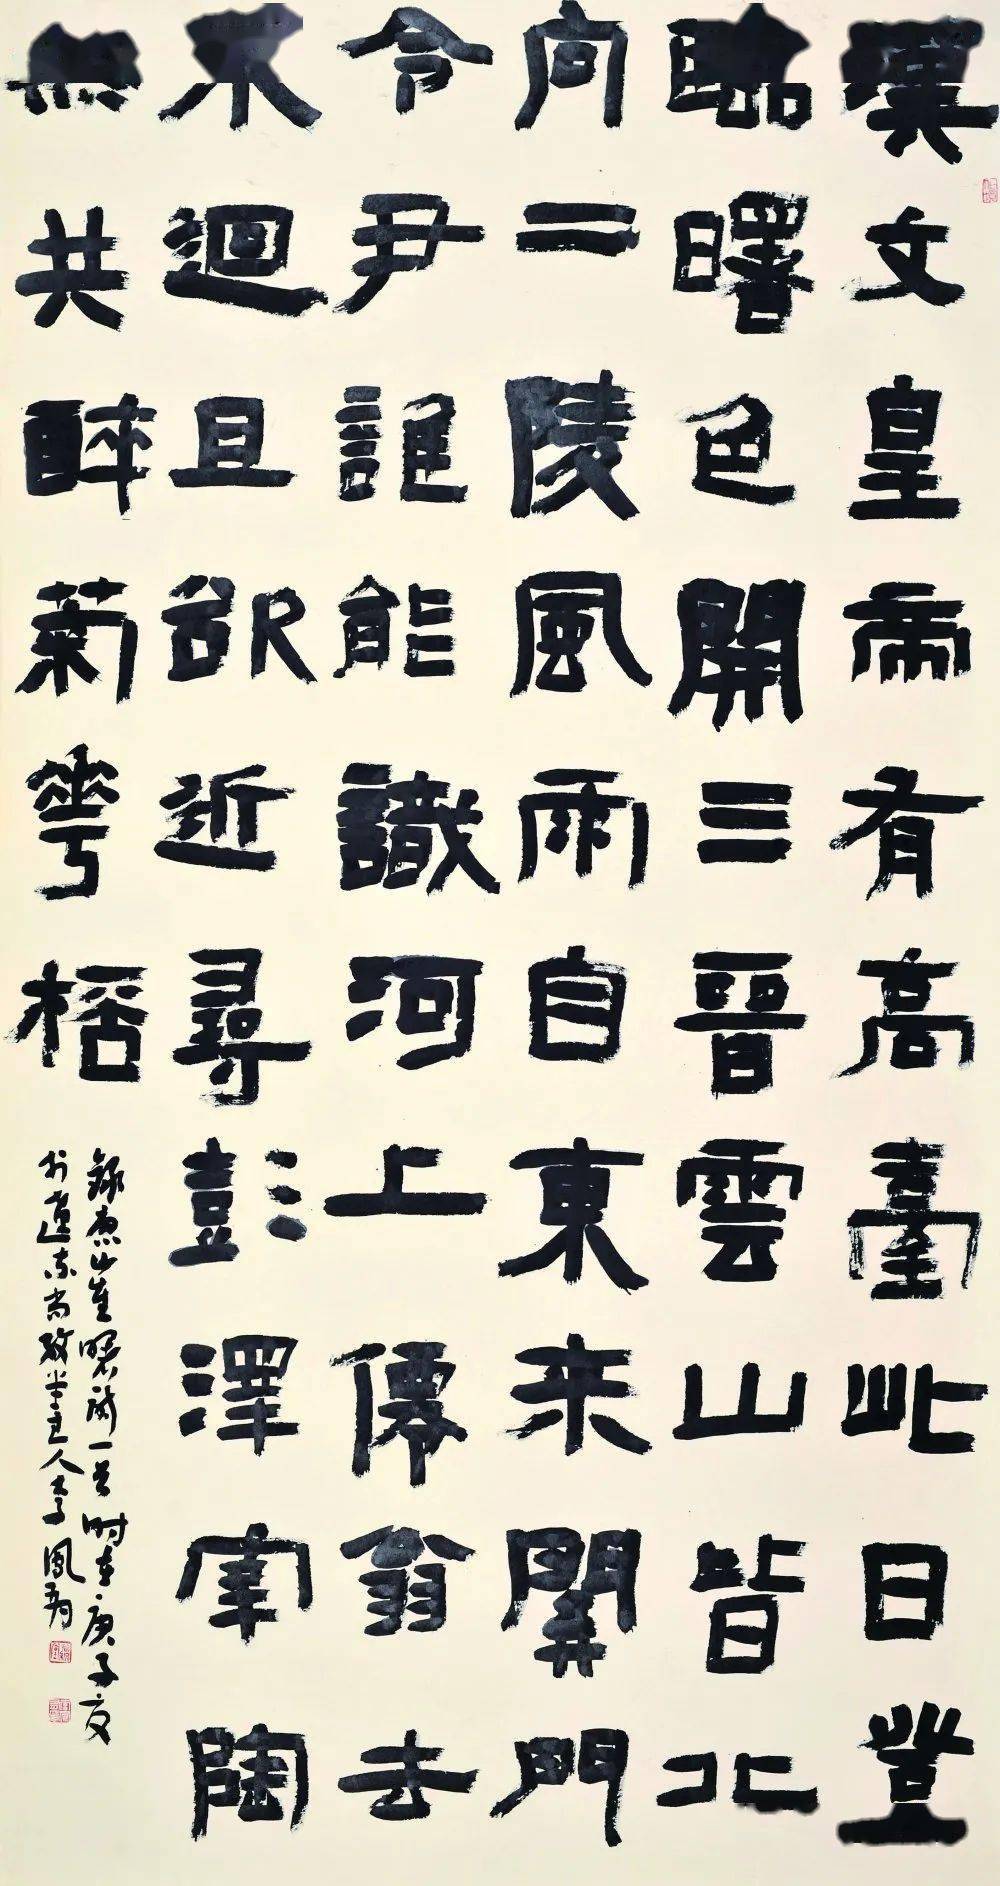 漢文皇帝有高臺此日登
臨曙色開三晉雲山皆北
向二陵風雨自東來關門
令尹誰能識河上僊翁去
不迴且欲近尋彭澤宰陶
然共醉菊華桮
錄唐崔曙詩一首時在庚子夏
於 尚 主人李鳳